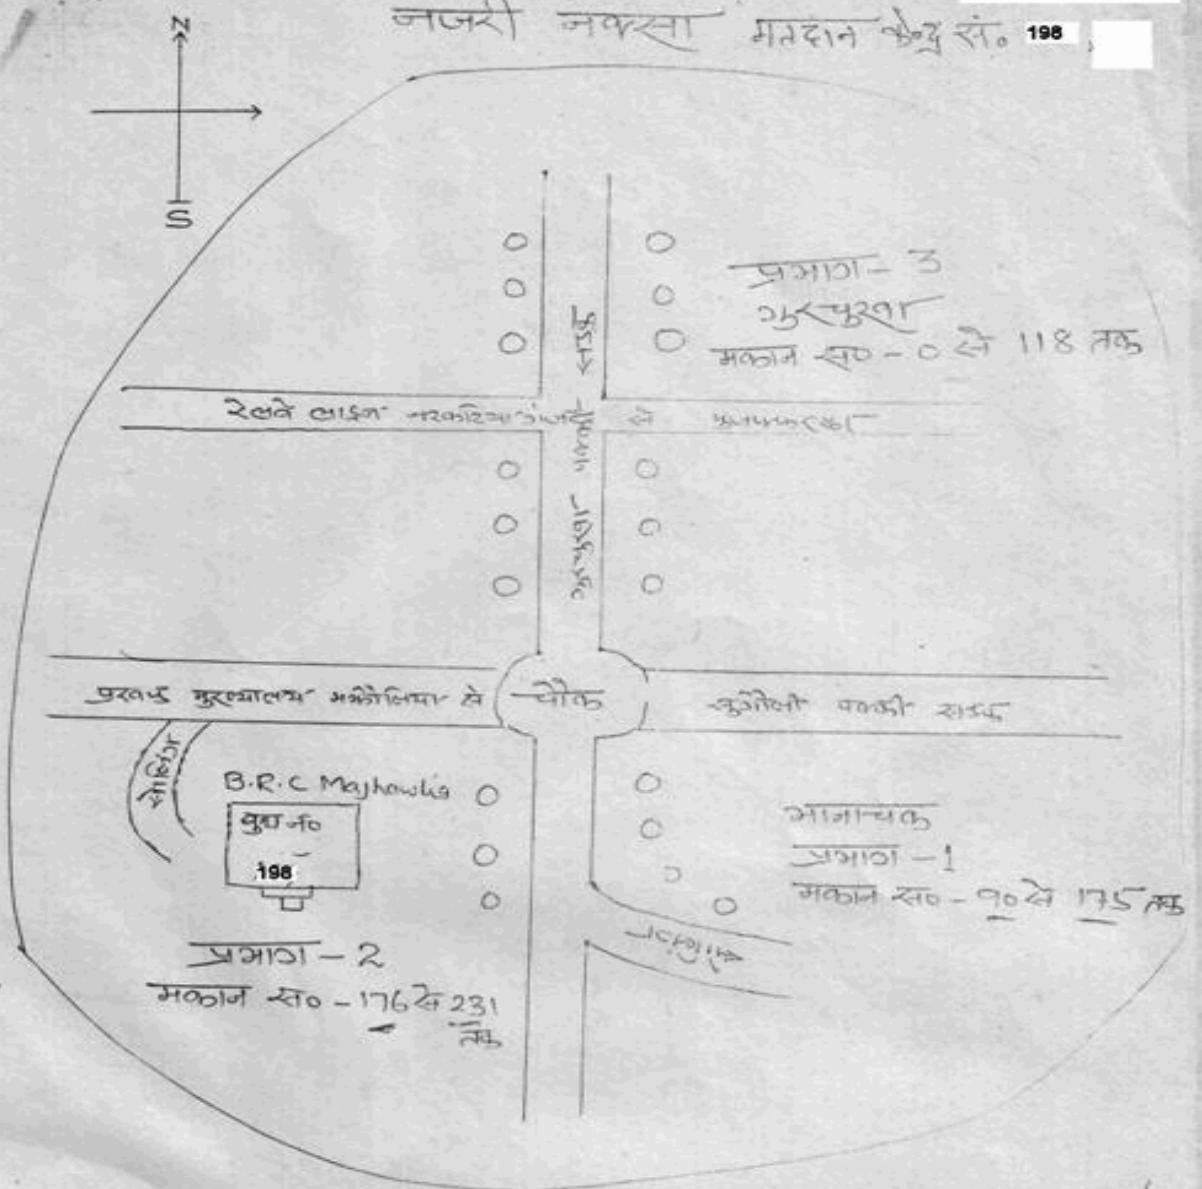 नजरी नक्सा मतदान केन्द्र सं० 198
N
S
प्रभाग - 3
गुरचुरवा
मकान स० - 0 से 118 तक
सड़क
रेलवे लाइन नरकटियागंज से मुजफ्फरपुर
प्रखण्ड मुख्यालय मझौलिया से
चौक
सुगौली पक्की सड़क
सोलिंग
B.R.C Majhawlia
बुथ नं०
198
भानाचक
प्रभाग - 1
मकान स० - 90 से 175 तक
सोलिंग
प्रभाग - 2
मकान स० - 176 से 231
तक